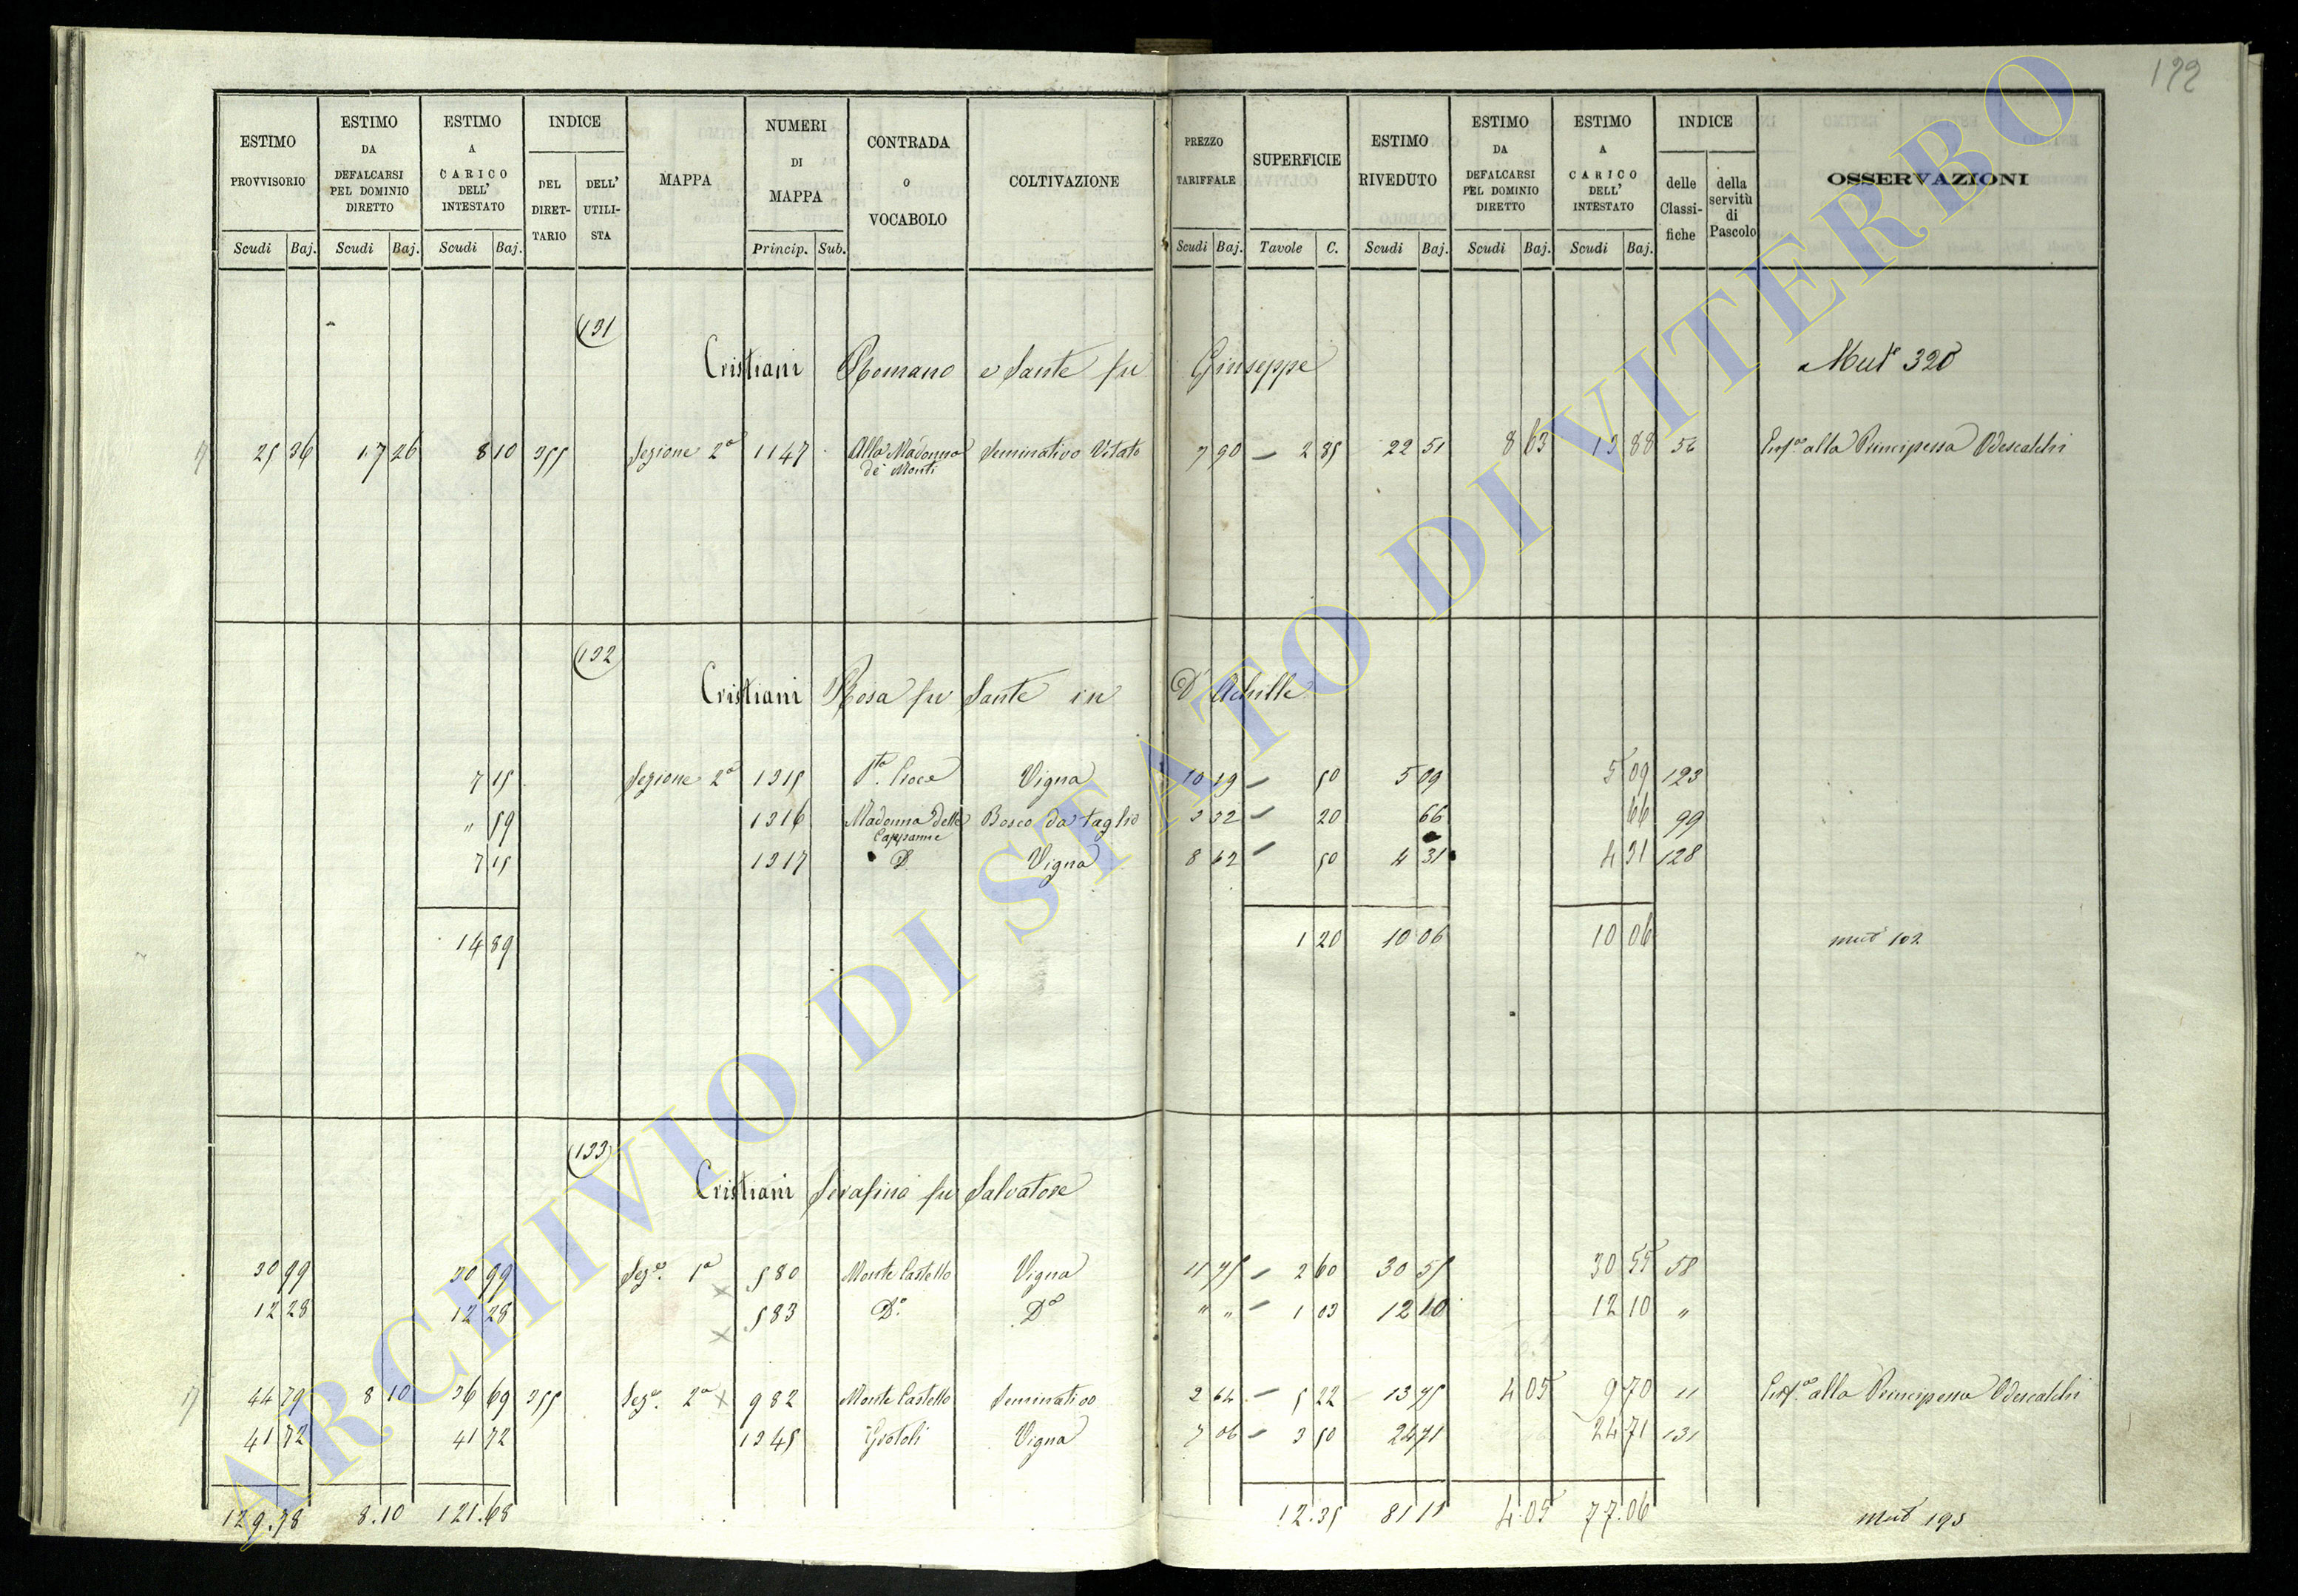 192
ESTIMO PROVVISORIO Scudi Baj.
ESTIMO DA DEFALCARSI PEL DOMINIO DIRETTO Scudi Baj.
ESTIMO A CARICO DELL' INTESTATO Scudi Baj.
INDICE DEL DIRET-TARIO DELL' UTILI-STA
MAPPA
NUMERI DI MAPPA Princip. Sub.
CONTRADA o VOCABOLO
COLTIVAZIONE
PREZZO TARIFFALE Scudi Baj.
SUPERFICIE Tavole C.
ESTIMO RIVEDUTO Scudi Baj.
ESTIMO DA DEFALCARSI PEL DOMINIO DIRETTO Scudi Baj.
ESTIMO A CARICO DELL' INTESTATO Scudi Baj.
INDICE delle Classi-fiche della servitù di Pascolo
OSSERVAZIONI
131
Cristiani Romano e Sante fu Giuseppe Mut. 320
25 36 17 26 8 10 355 Sezione 2a 1147 Alla Madonna de' Monti Seminativo Vitato 7 90 – 2 85 22 51 8 63 13 88 56 alla Principessa Odescalchi
132
Cristiani Rosa fu Sante in D'Achille
7 15 Sezione 2a 1315 Vigna 10 19 – 50 5 09 5 09 123
" 59 1316 Madonna delle Cappanne Bosco da taglio 3 32 – 20 66 66 99
7 15 1317 D. Vigna 8 62 – 50 4 31 4 31 128
14 89 1 20 10 06 10 06 mut 102
133
Cristiani Serafino fu Salvatore
30 99 30 99 Sez.e 1a 580 Monte Castello Vigna 11 75 – 2 60 30 55 30 55 58
12 28 12 28 583 D.o D.o " " – 1 03 12 10 12 10 "
44 79 8 10 36 69 355 Sez.e 2a 982 Monte Castello Seminativo 2 64 – 5 22 13 75 4 05 9 70 11 alla Principessa Odescalchi
41 72 41 72 1345 Grotoli Vigna 7 06 – 3 50 24 71 24 71 131
129.78 8.10 121.68 12.35 81 11 4.05 77.06 mut 195
ARCHIVIO DI STATO DI VITERBO